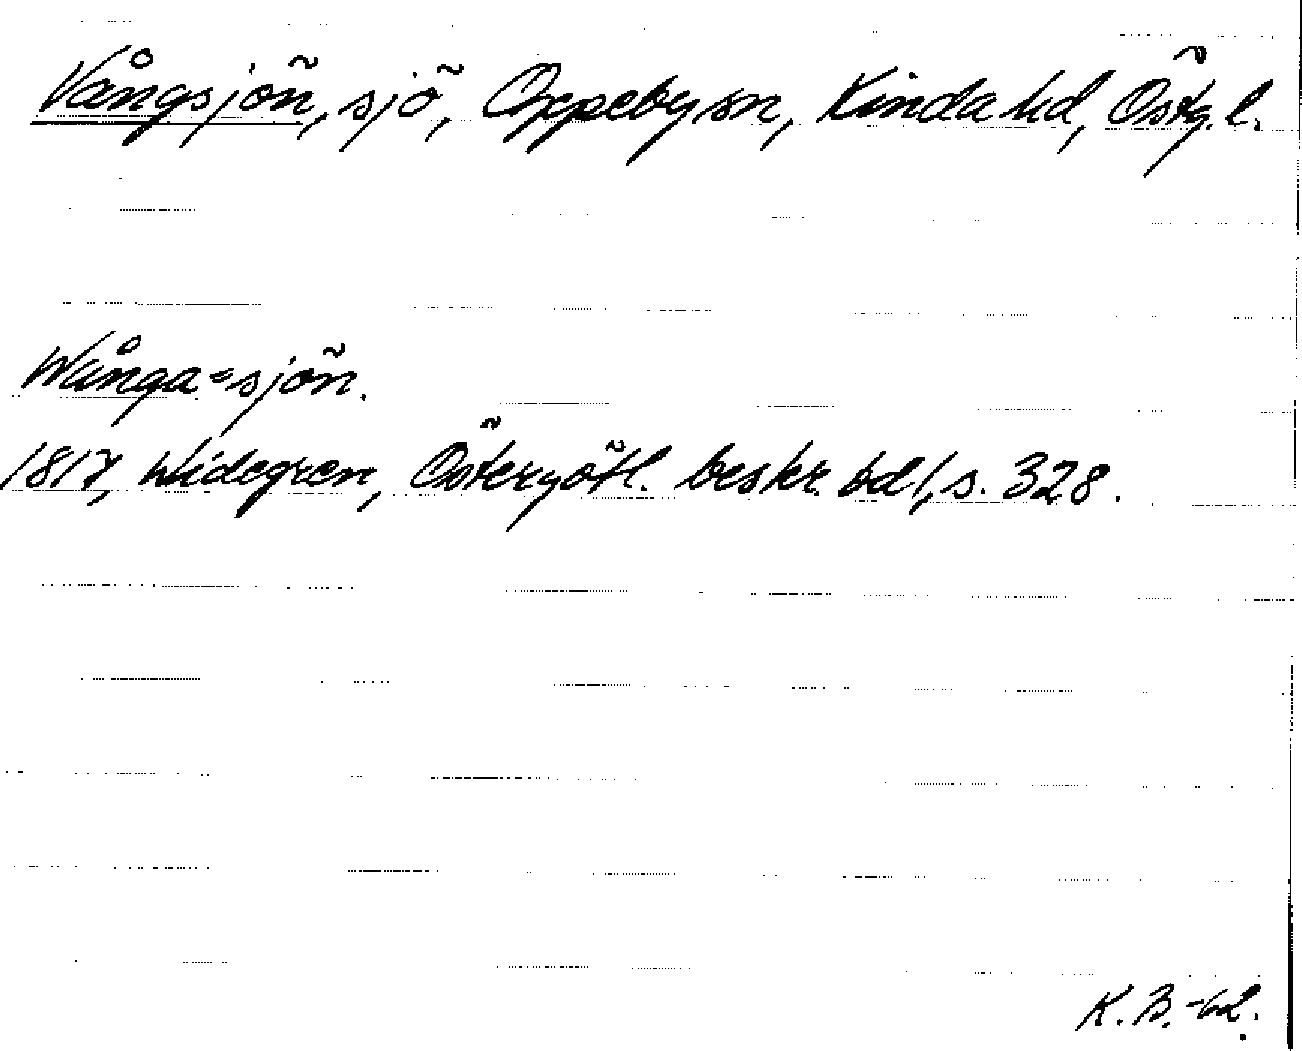 Vångsjön, sjö, Oppeby sn, Kinda hd, Östg. l.
Wånga=sjön.
1817, Widegren, Östergötl. beskr. bd 1, s. 328.
K. B.